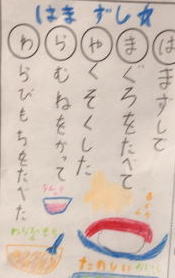 はま ずし☆
はますしで
まぐろをたべて
やくそくした
らむねをかって
わらびもちをたべた
わらびもち
たのしい